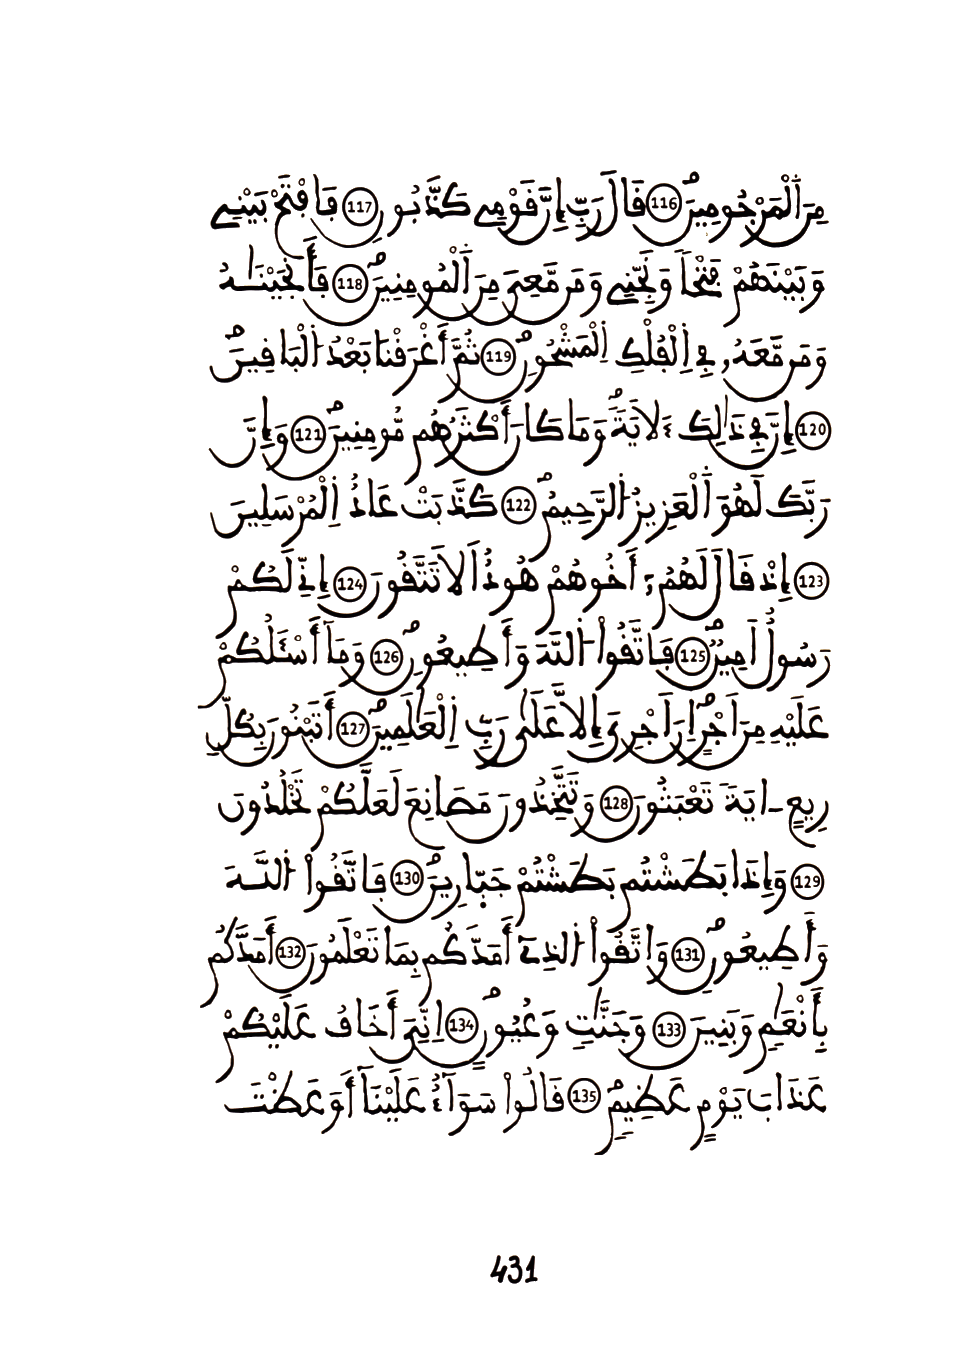 مِنَ اَ۬لْمَرْجُومِينَۖ 116 قَالَ رَبِّ إِنَّ قَوْمِے كَذَّبُونِ 117 فَافْتَحْ بَيْنِے
وَبَيْنَهُمْ فَتْحاٗ وَنَجِّنِے وَمَن مَّعِے مِنَ اَ۬لْمُومِنِينَۖ 118 فَأَنجَيْنَٰهُ
وَمَن مَّعَهُۥ فِے اِ۬لْفُلْكِ اِ۬لْمَشْحُونِۖ 119 ثُمَّ أَغْرَقْنَا بَعْدُ اُ۬لْبَاقِينَۖ
120 إِنَّ فِے ذَٰلِكَ ءَلَايَةٗۖ وَمَا كَانَ أَكْثَرُهُم مُّومِنِينَۖ 121 وَإِنَّ
رَبَّكَ لَهُوَ اَ۬لْعَزِيزُ اُ۬لرَّحِيمُۖ 122 كَذَّبَتْ عَادٌ اِ۬لْمُرْسَلِينَ
123 إِذْ قَالَ لَهُمُۥٓ أَخُوهُمْ هُودٌ اَلَا تَتَّقُونَ 124 إِنِّے لَكُمْ
رَسُولٌ اَمِينٞۖ 125 فَاتَّقُوا۟ اُ۬للَّهَ وَأَطِيعُونِۖ 126 وَمَآ أَسْـَٔلُكُمْ
عَلَيْهِ مِنَ اَجْرٍۖ اِنَ اَجْرِيَ إِلَّا عَلَىٰ رَبِّ اِ۬لْعَٰلَمِينَۖ 127 أَتَبْنُونَ بِكُلِّ
رِيعٍ ـ ايَةٗ تَعْبَثُونَ 128 وَتَتَّخِذُونَ مَصَانِعَ لَعَلَّكُمْ تَخْلُدُونَ
129 وَإِذَا بَطَشْتُم بَطَشْتُمْ جَبَّارِينَۖ 130 فَاتَّقُوا۟ اُ۬للَّهَ
وَأَطِيعُونِۖ 131 وَاتَّقُوا۟ اُ۬لذِےٓ أَمَدَّكُم بِمَا تَعْلَمُونَ 132 أَمَدَّكُم
بِأَنْعَٰمٖ وَبَنِينَ 133 وَجَنَّٰتٖ وَعُيُونٍۖ 134 اِنِّيَ أَخَافُ عَلَيْكُمْ
عَذَابَ يَوْمٍ عَظِيمٖۖ 135 قَالُوا۟ سَوَآءٌ عَلَيْنَآ أَوَعَظْتَ
431